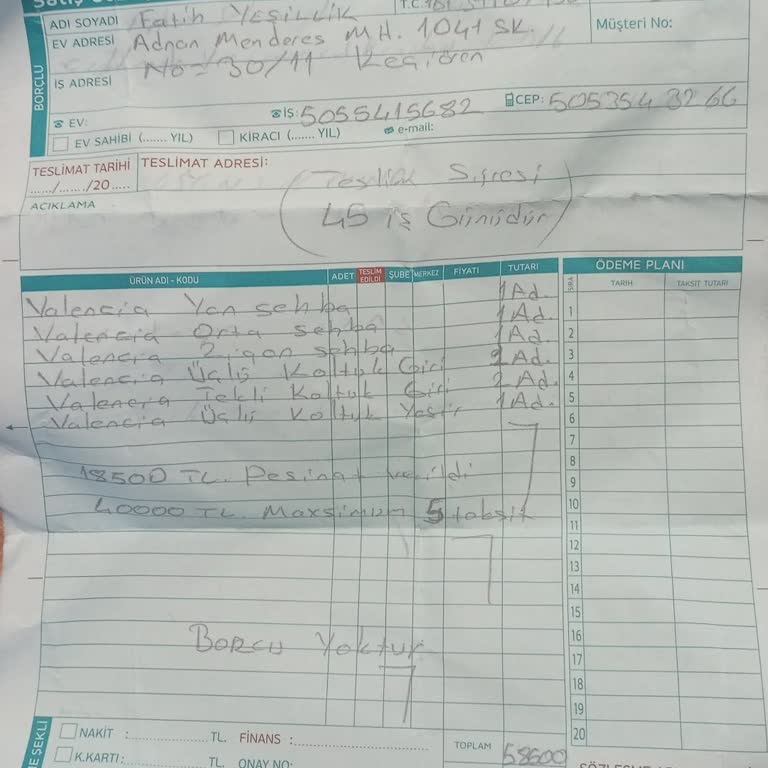 ADI SOYADI Fatih Yeşillik
Müşteri No:
EV ADRESİ Adnan Menderes MH. 1041 SK.
No=30/11 Keçiören
İŞ ADRESİ
BORÇLU
EV: İŞ: 5055415682 CEP: 505354 8266
EV SAHİBİ (...... YIL) KİRACI (...... YIL) e-mail:
TESLİMAT TARİHİ TESLİMAT ADRESİ:
....../......./20.....
AÇIKLAMA
45 iş Günüdür
ÜRÜN ADI - KODU ADET TESLİM EDİLDİ ŞUBE MERKEZ FİYATI TUTARI
ÖDEME PLANI
SIRA TARİH TAKSİT TUTARI
Valencia Yan sehba 1Ad.
Valencia Orta sehba 1Ad.
Valencia Zigon sehba 1Ad.
Valencia Üçlü Koltuk Gri 2Ad.
Valencia Tekli Koltuk Gri 2Ad.
Valencia Üçlü Koltuk Yeşil 1Ad.
18500 TL. Peşinat verildi
40000 TL. Maksimum 5 taksit
Borcu Yoktur
1
2
3
4
5
6
7
8
9
10
11
12
13
14
15
16
17
18
19
20
NAKİT :..................... TL. FİNANS :..............................
K.KARTI:.................... TL. ONAY NO:
TOPLAM 58600